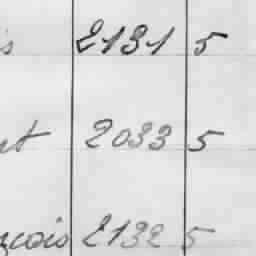 s 2131 5
nt 2033 5
nçois 2132 5